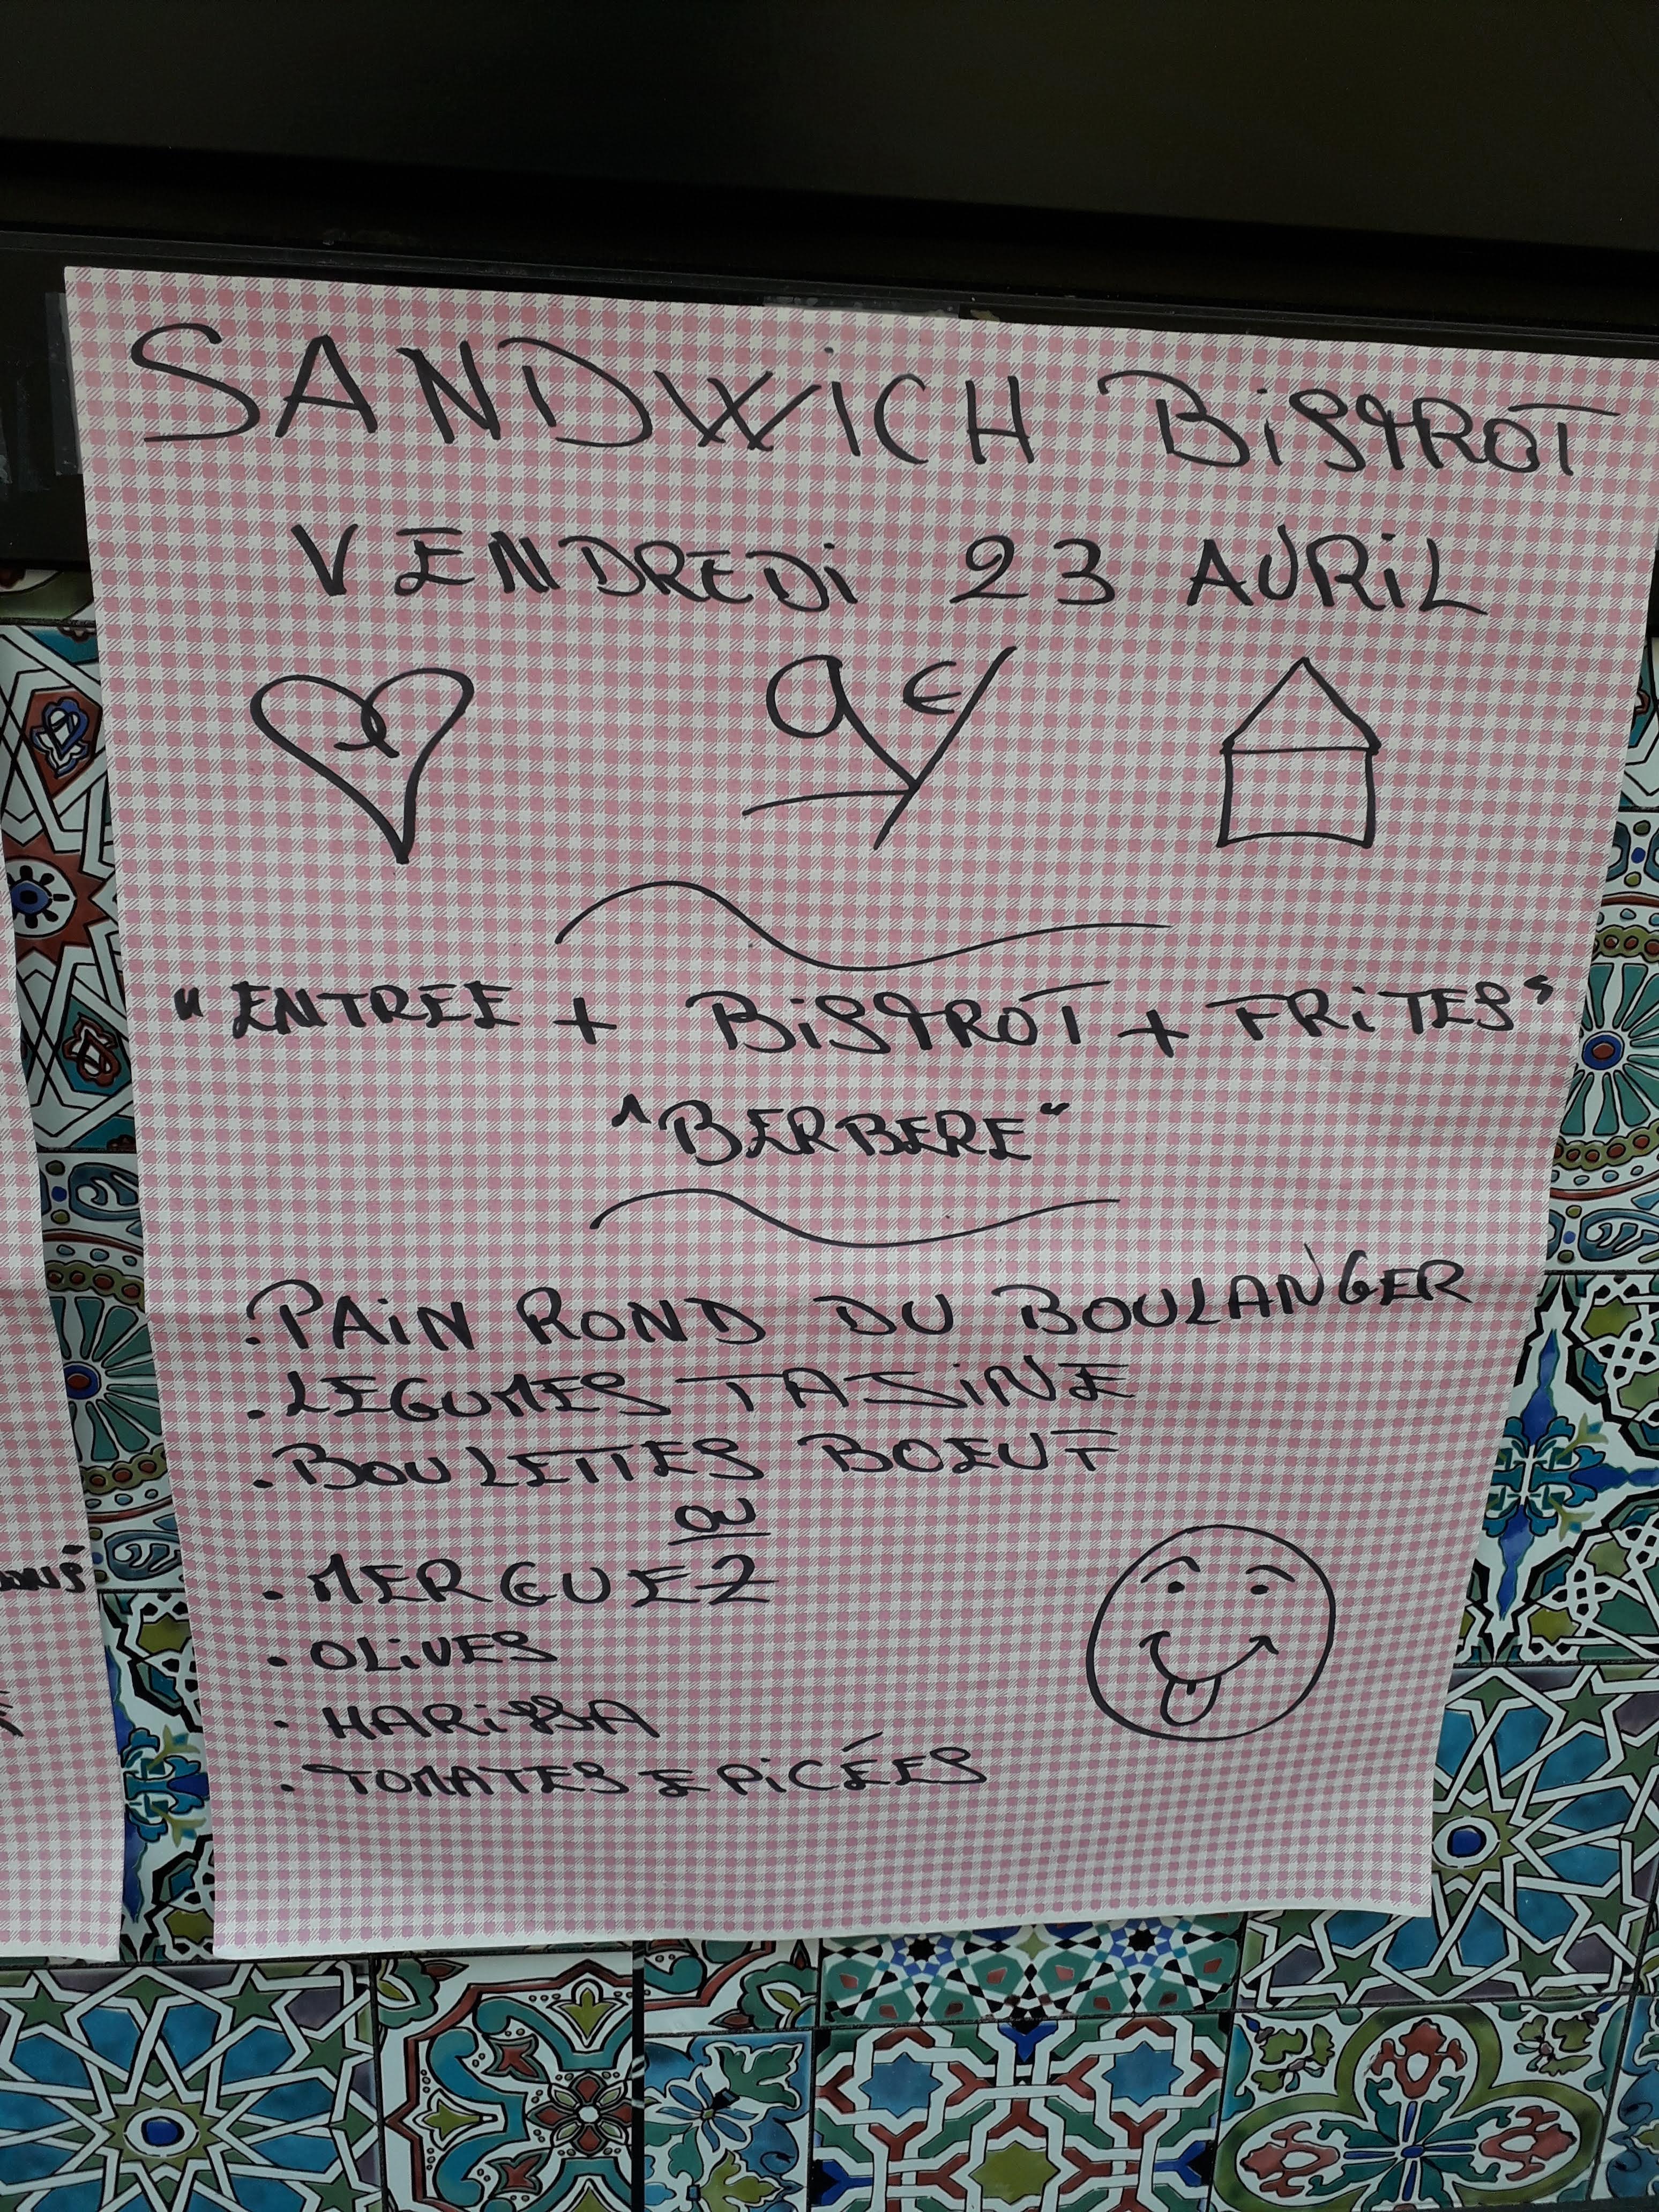 SANDWICH BISTROT
VENDREDI 23 AVRIL
9€
"ENTREE + BISTROT + FRITES"
"BERBERE"
. PAIN ROND DU BOULANGER
. LEGUMES TAJINE
. BOULETTES BOEUF
OU
. MERGUEZ
. OLIVES
. HARISSA
. TOMATES EPICÉES